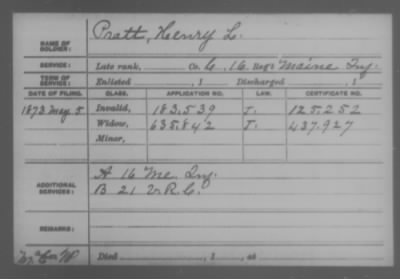 NAME OF SOLDIER: Pratt, Henry L.
SERVICE: Late rank, Co. G, 16 Reg't Maine Inf.
TERM OF SERVICE: Enlisted , 1 Discharged , 1
DATE OF FILING. CLASS. APPLICATION NO. LAW. CERTIFICATE NO.
1873 May 5. Invalid, 183.539 J. 125.252
Widow, 635.842 J. 437.927
Minor,
ADDITIONAL SERVICES: A 16 Me. Inf.
B 21 V.R.C.
REMARKS:
Died , 1 , at